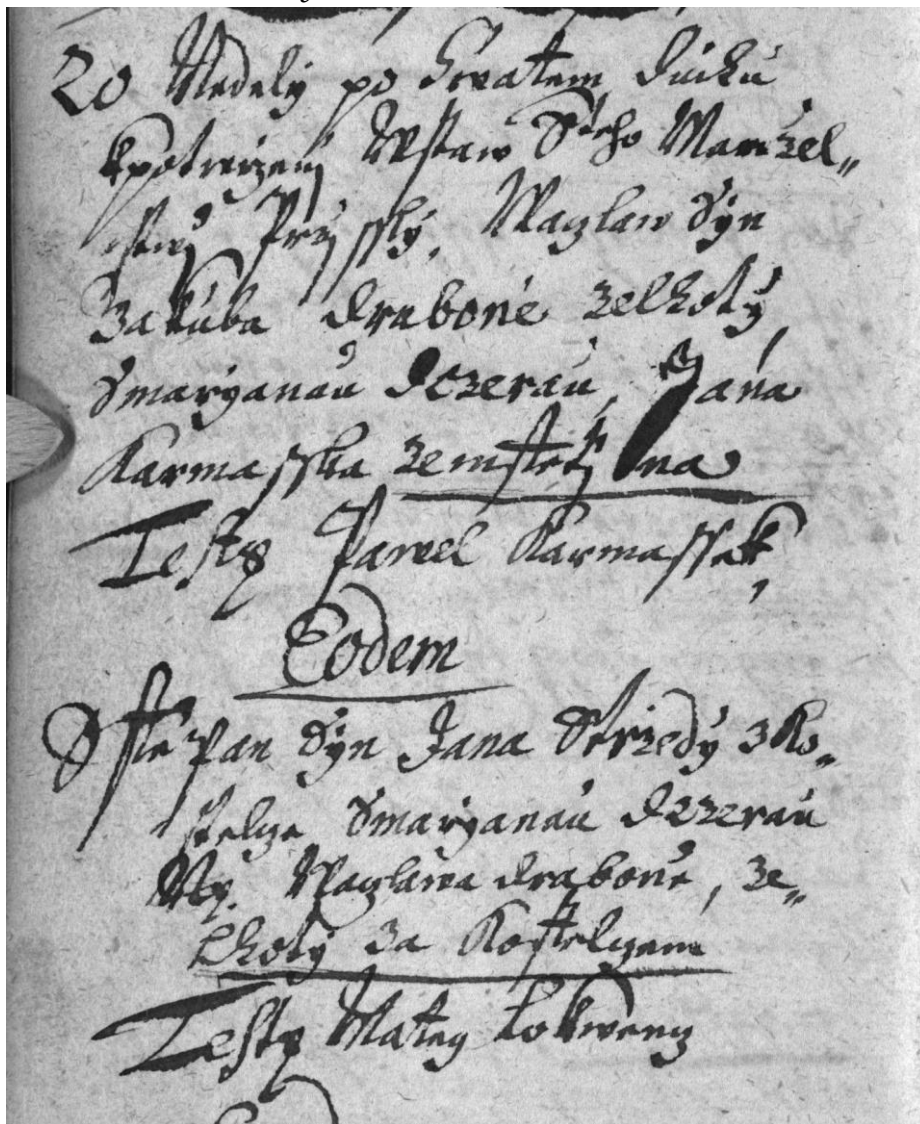 20 Nedely po Swatem Duchu
kpotwrzenj Wstaw Steho Manžel„
stwj Pržissly, Waczlaw Syn
Jakuba Drabone zelhoty
Smaryanau Dczerau, Jana
Karmasska zemstetj na
Testes Pawel Karmassek,
Eodem
Sstiepan Syn Jana Strzedy z Ko„
stelcze Smaryanau Dczerau
Waczlawa Drabone, ze„
Lhoty za Kostelczem
Testes Matieg